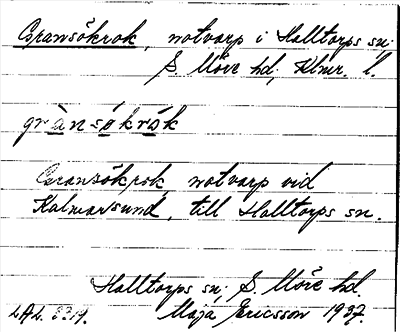 Gransökrok, notvarp i Halltorps sn;
S. Möre hd, Klmr. l.
grànsókrók
Gransökrok, notvarp vid
Kalmarsund, till Halltorps sn.
Halltorps sn; S. Möre hd.
Maja Ericsson 1937.